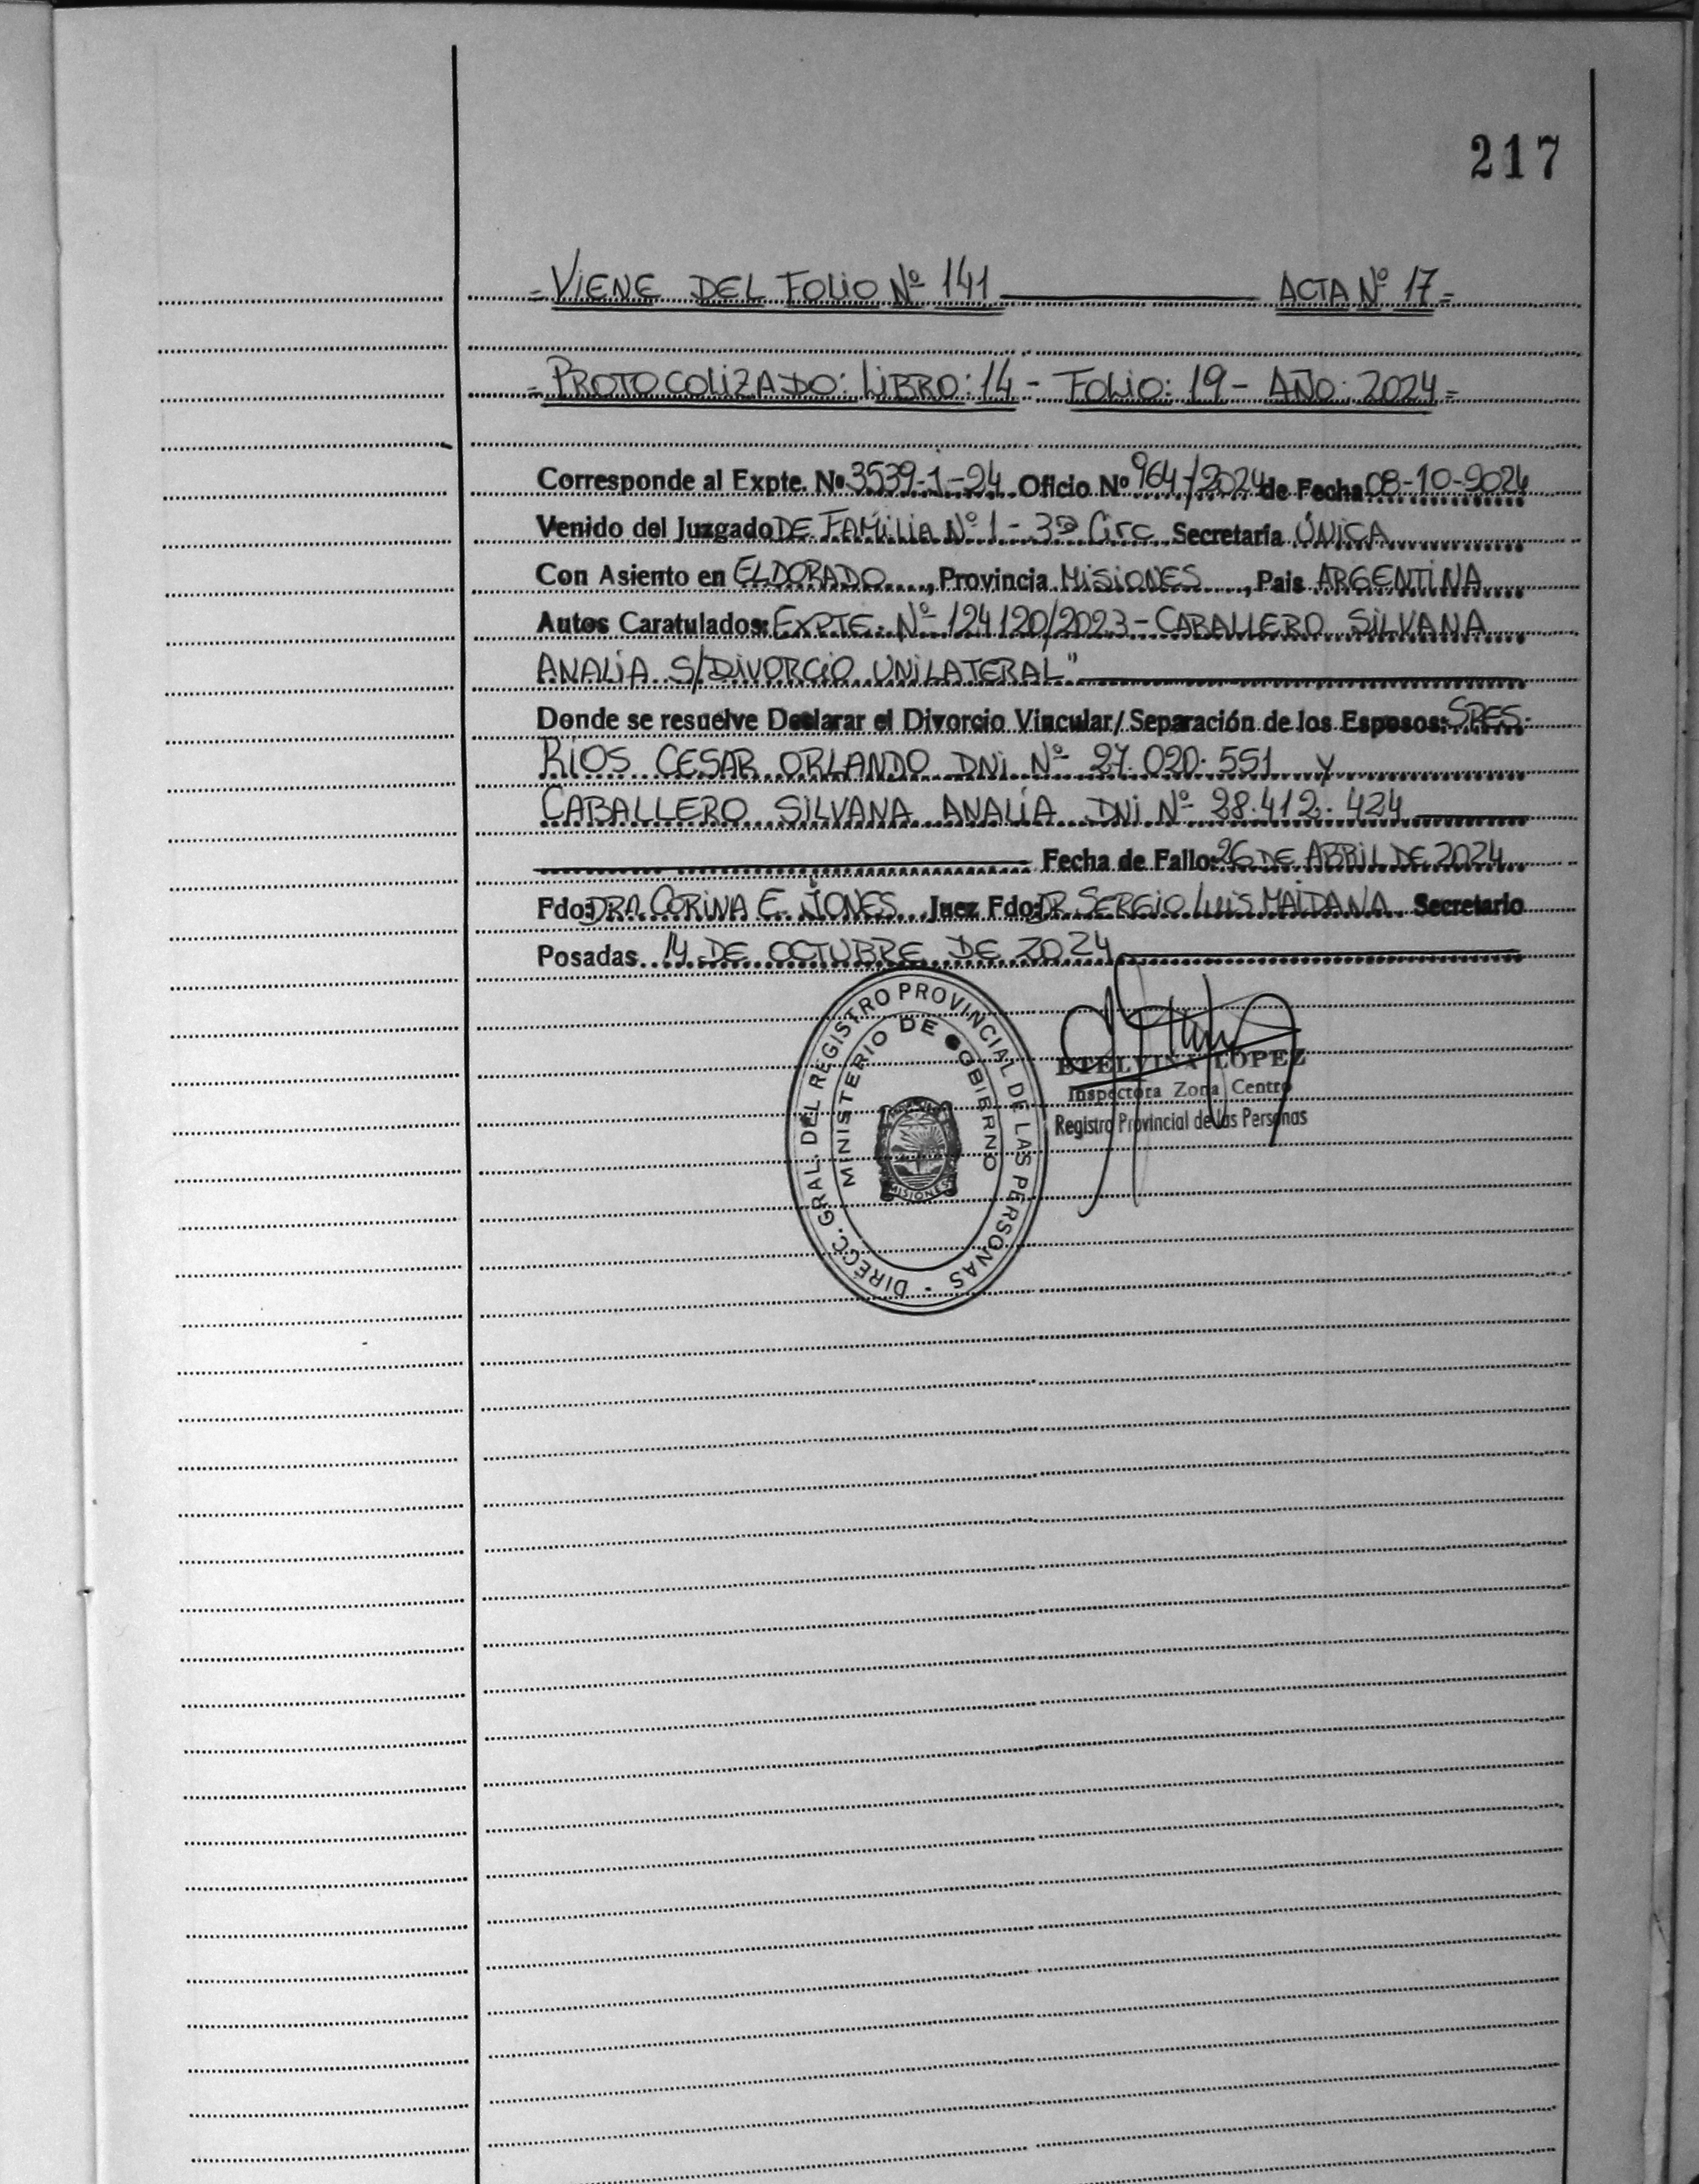 217
= VIENE DEL FOLIO Nº 141 ACTA Nº 17 =
= PROTOCOLIZADO: LIBRO: 14 - FOLIO: 19 - AÑO: 2024 =
Corresponde al Expte. Nº 3539-1-24 Oficio Nº 964/2024 de Fecha 08-10-2024
Venido del Juzgado DE FAMILIA Nº 1 - 3ª Circ Secretaría ÚNICA
Con Asiento en ELDORADO, Provincia MISIONES, Pais ARGENTINA
Autos Caratulados: EXPTE. Nº 124120/2023 - CABALLERO SILVANA
ANALÍA S/DIVORCIO UNILATERAL"
Donde se resuelve Declarar el Divorcio Vincular/Separación de los Esposos: SRES.
RÍOS CESAR ORLANDO DNI Nº 27.020.551 Y
CABALLERO SILVANA ANALÍA DNI Nº 28.412.424
Fecha de Fallo: 26 DE ABRIL DE 2024
Fdo: DRA. CORINA E. JONES Juez Fdo: DR. SERGIO LUIS MAIDANA Secretario
Posadas 14 DE OCTUBRE DE 2024
DIRECC. GRAL. DEL REGISTRO PROVINCIAL DE LAS PERSONAS
MINISTERIO DE GOBIERNO
MISIONES
ETELVINA LOPEZ
Inspectora Zona Centro
Registro Provincial de las Personas